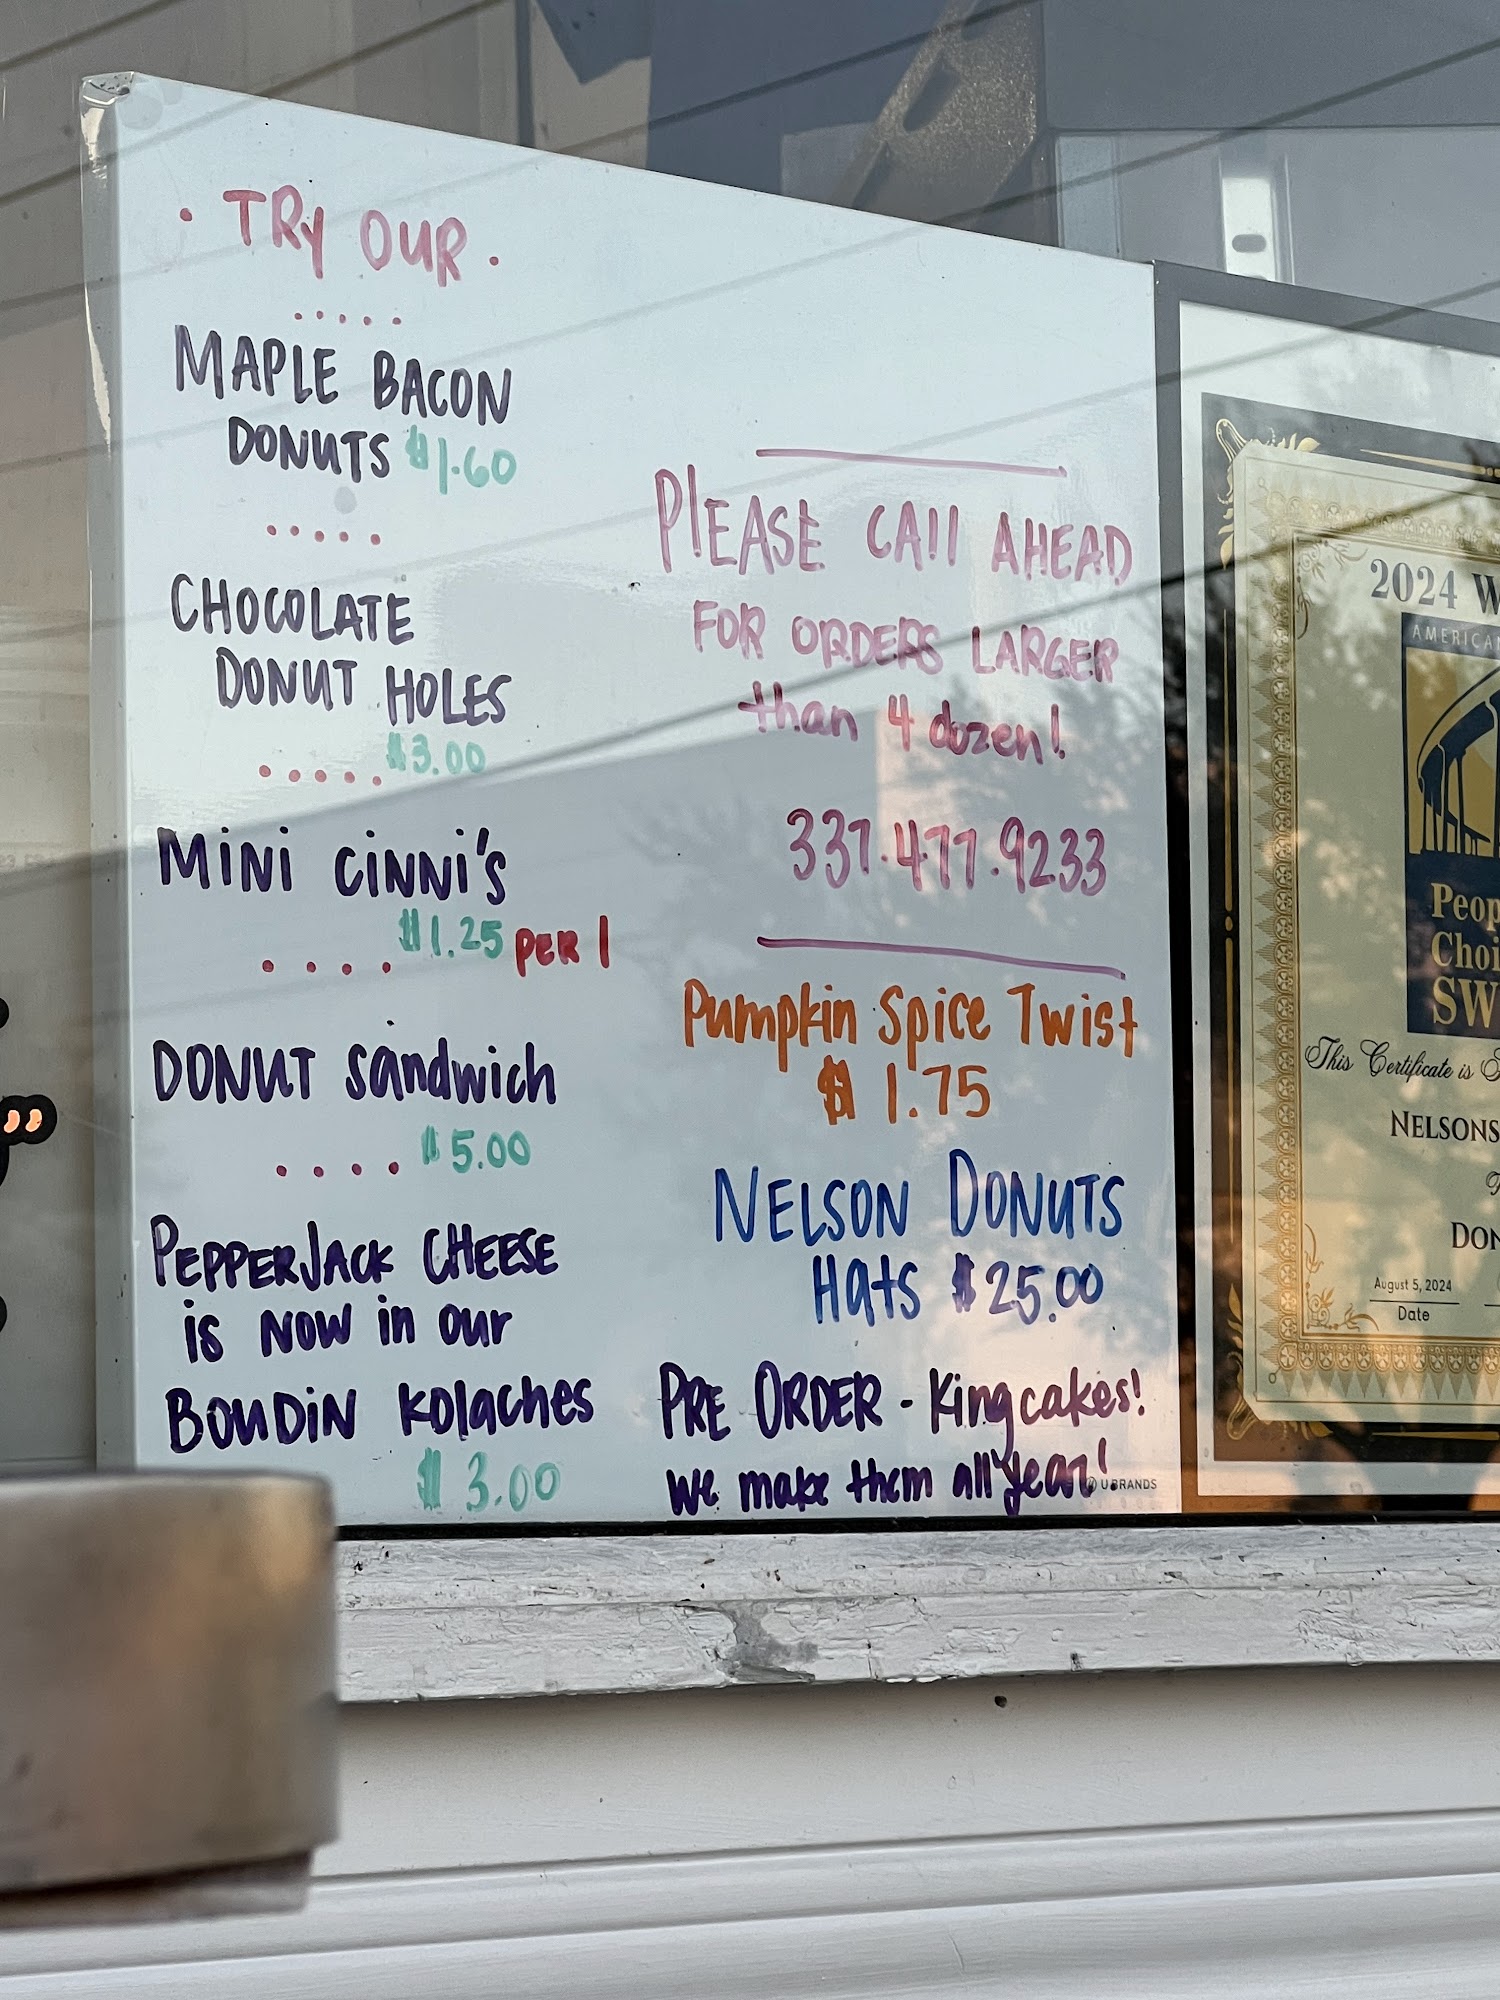 · TRY OUR ·
MAPLE BACON
DONUTS $1.60
CHOCOLATE
DONUT HOLES
$3.00
MINI CINNI'S
$1.25 PER 1
DONUT Sandwich
$5.00
PEPPERJACK CHEESE
is NOW in our
BOUDIN Kolaches
$3.00
PLEASE CAll AHEAD
FOR ORDERS LARGER
than 4 dozen!
337.477.9233
Pumpkin Spice Twist
$1.75
NELSON DONUTS
Hats $25.00
PRE ORDER - King cakes!
we make them all year!
U BRANDS
2024 W
AMERICA
Peop
Choi
SW
This Certificate is
NELSONS
DON
August 5, 2024
Date